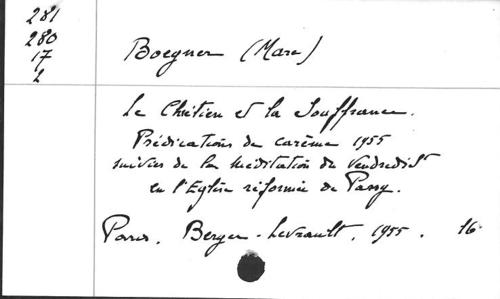 281
280
17
2
Boegner (Marc)
Le Chrétien et la Souffrance.
Prédications de carême 1955
suivies de la méditation du Vendredi St
en l'Eglise réformée de Passy.
Paris. Berger-Levrault. 1955. 16°